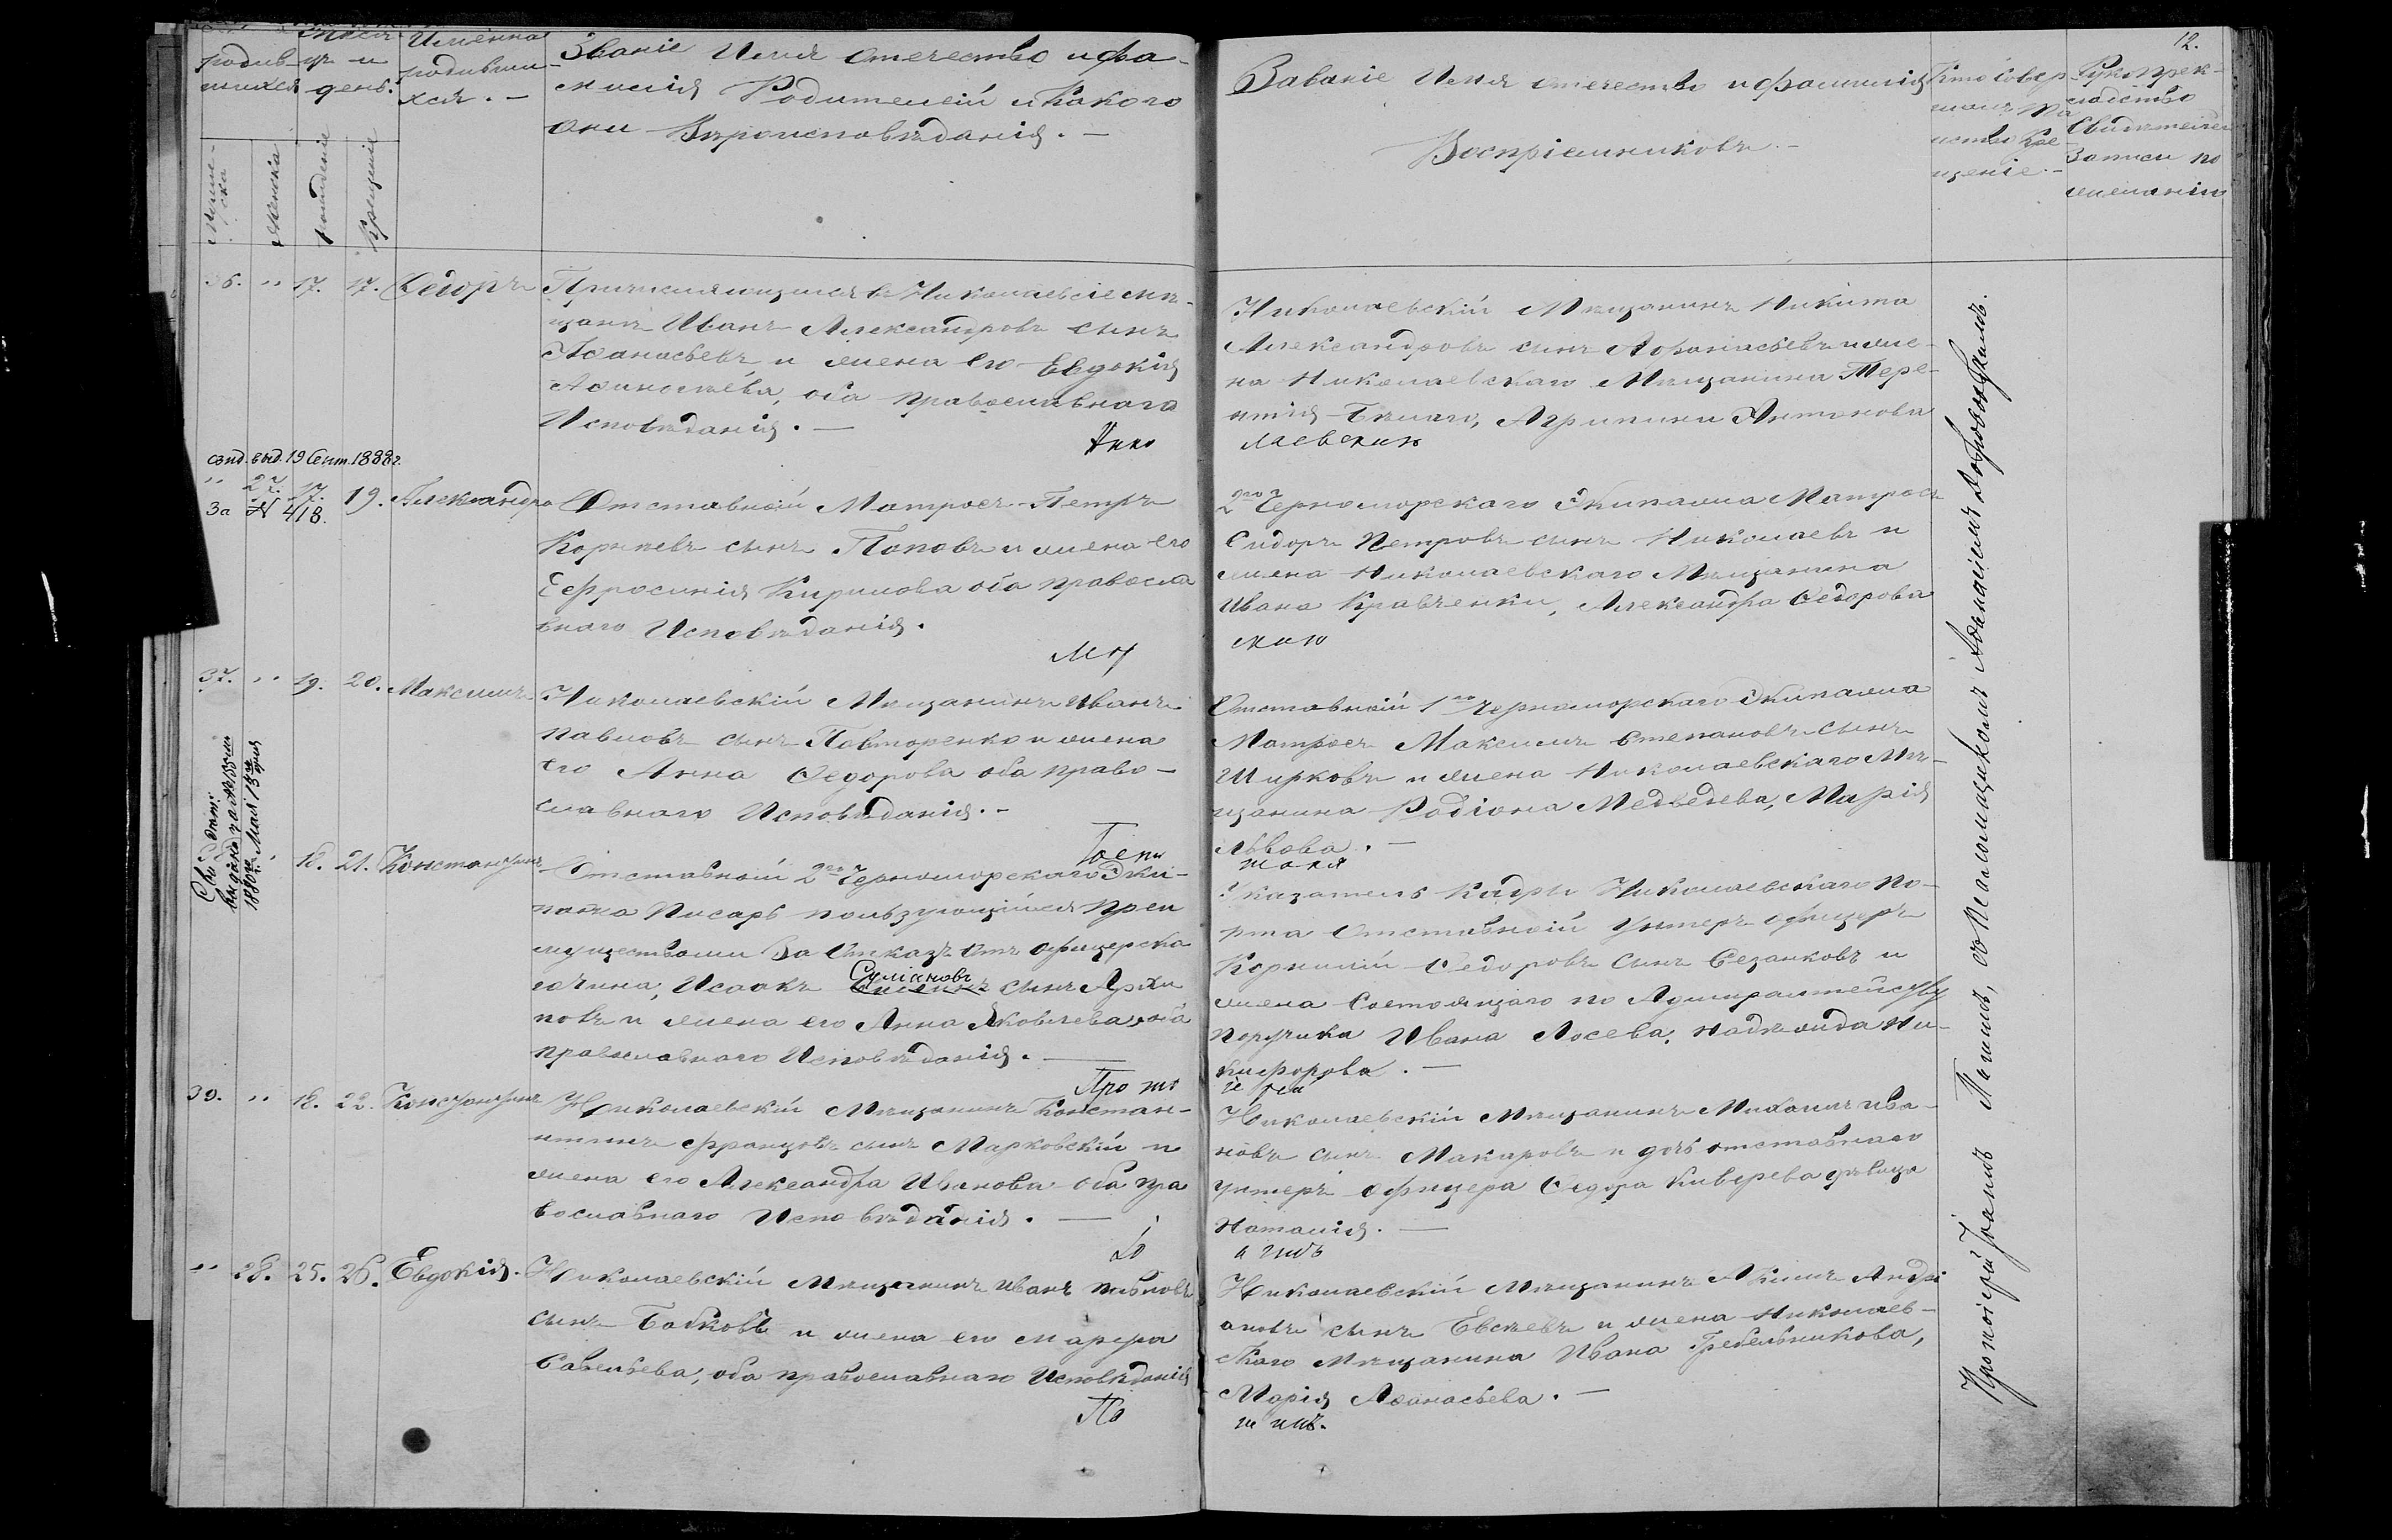 12.
родив-
шихся
мѣся-
цъ и
день.
Имена
родивши-
хся. —
Званіе Имя отечество и фа-
милія Родителей и Какого
они Вѣроисповѣданія. —
рожденія
Крещенія
Званіе Имя отечество и фамилія
Воспріемниковъ. —
Кто совер
шалъ та
инство Кре-
щенія. —
Рукоприк-
ладство
Свидѣтелей
Записи по
желанію
36. " 17. 17. Ѳедоръ
Причисляющійся въ Николаевскіе мѣ-
щане Иванъ Александровъ сынъ
Аѳанасьевъ и жена его Евдокія
оба православнаго
Исповѣданія. —
Николаевскій Мѣщанинъ Никита
Александровъ сынъ Афанасьевъ и же-
на Николаевскаго Мѣщанина Тере-
нтія Бѣлаго, Агрипина Антонова
Нико
лаевскихъ
свид. выд. 19 Сент. 1888 г.
" 27. 17. 19. Александра
За № 418.
Отставной Матросъ Петръ
Корнѣевъ сынъ Поповъ и жена его
Ефросинія Кирилова оба правосла
внаго Исповѣданія.
2го Черноморскаго Экипажа Матросъ
Сидоръ Петровъ сынъ Николаевъ и
жена Николаевскаго Мѣщанина
Ивана Кравченки, Александра Ѳедорова
37. " 19. 20. Максимъ
Николаевскій Мѣщанинъ Иванъ
Павловъ сынъ Повторенко и жена
его Анна Ѳедорова оба право-
славнаго Исповѣданія. —
Отставной 1го Черноморскаго Экипажа
Матросъ Максимъ Степановъ сынъ
Ширковъ и жена Николаевскаго Мѣ-
щанина Родіона Медведева, Марія
Львова. —
18. 21. Константинъ
Отставной 2го Черноморскаго Эки-
пажа Писарь пользующійся преи
муществами За Отказъ Отъ офицерска
го чина, Исаакъ Симіоновъ сынъ Архи
повъ и жена его Анна Яковлева, оба
православнаго Исповѣданія. —
Госпи
таля
Николаевскаго По-
рта Отставной Унтеръ офицеръ
Корнилій Ѳедоровъ Сынъ Сезанковъ и
жена Состоящаго по Адмиралтейству
Поручика Ивана Лосева, Надежда Ни-
кифорова. —
39. " 18. 22. Константинъ
Николаевскій Мѣщанинъ Констан-
тинъ Францовъ сынъ Марковскій и
жена его Александра Иванова оба пра
вославнаго Исповѣданія. —
Прото
іерей
Николаевскій Мѣщанинъ Михаилъ Ива-
новъ сынъ Макаровъ и дочь отставнаго
унтеръ офицера Ѳедора Киверева дѣвица
Наталія. —
" 28. 25. 26. Евдокія.
Николаевскій Мѣщанинъ Иванъ Павловъ
сынъ Бобковъ и жена его Марфа
Савельева, оба православнаго Исповѣданія
Николаевскій Мѣщанинъ Акимъ Андрі
ановъ сынъ Евсѣевъ и жена Николаев-
скаго Мѣщанина Ивана Гребельникова,
Марія Аѳанасьева. —
Протоіерей Іоаннъ съ Псаломщикомъ Аѳанасіемъ